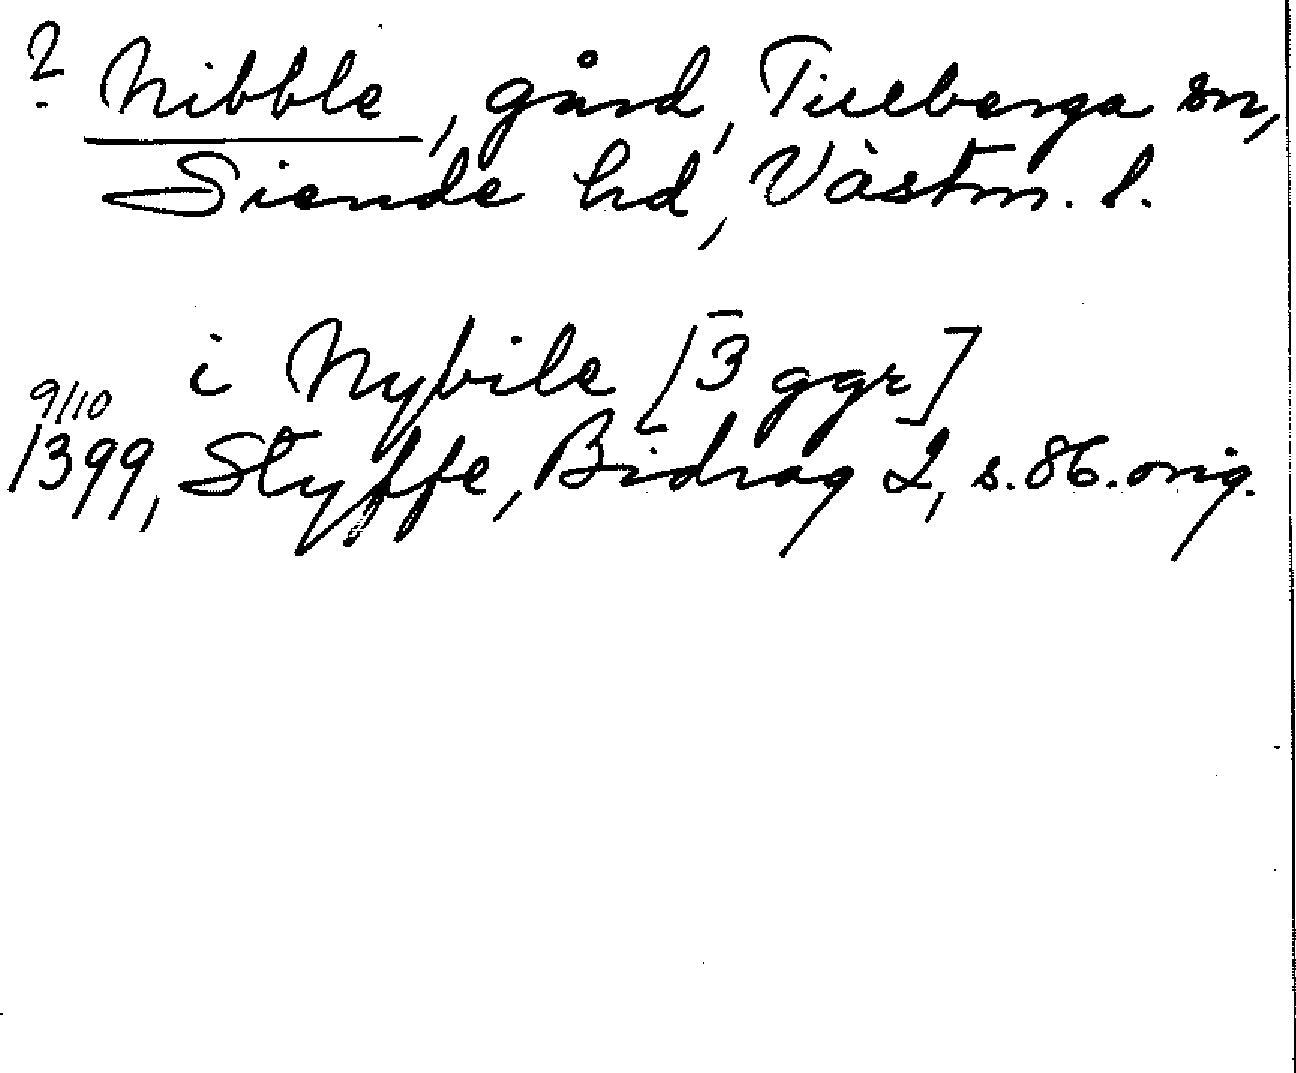 ? Nibble, gård, Tillberga sn,
Siende hd, Västm. l.
i Nybile [3 ggr]
9/10
1399, Styffe, Bidrag 2, s. 86. orig.